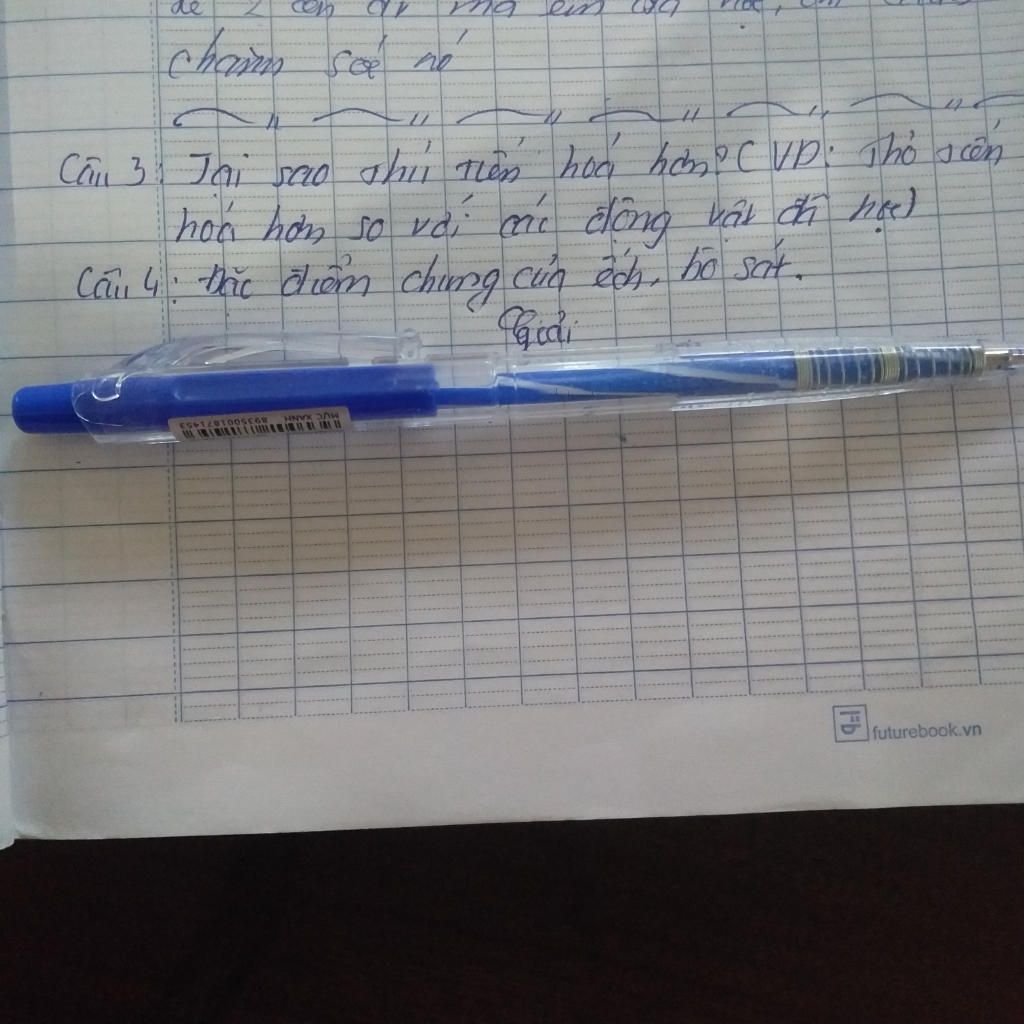 để 2 con
chăm soé nó
Câu 3: Tại sao thú tiến hoá hơn? (VD: Thỏ tiến
hoá hơn so với các động vật đã học)
Câu 4: Đặc điểm chung của ếch, bò sát.
Giải
MỰC XANH
8935001871453
futurebook.vn